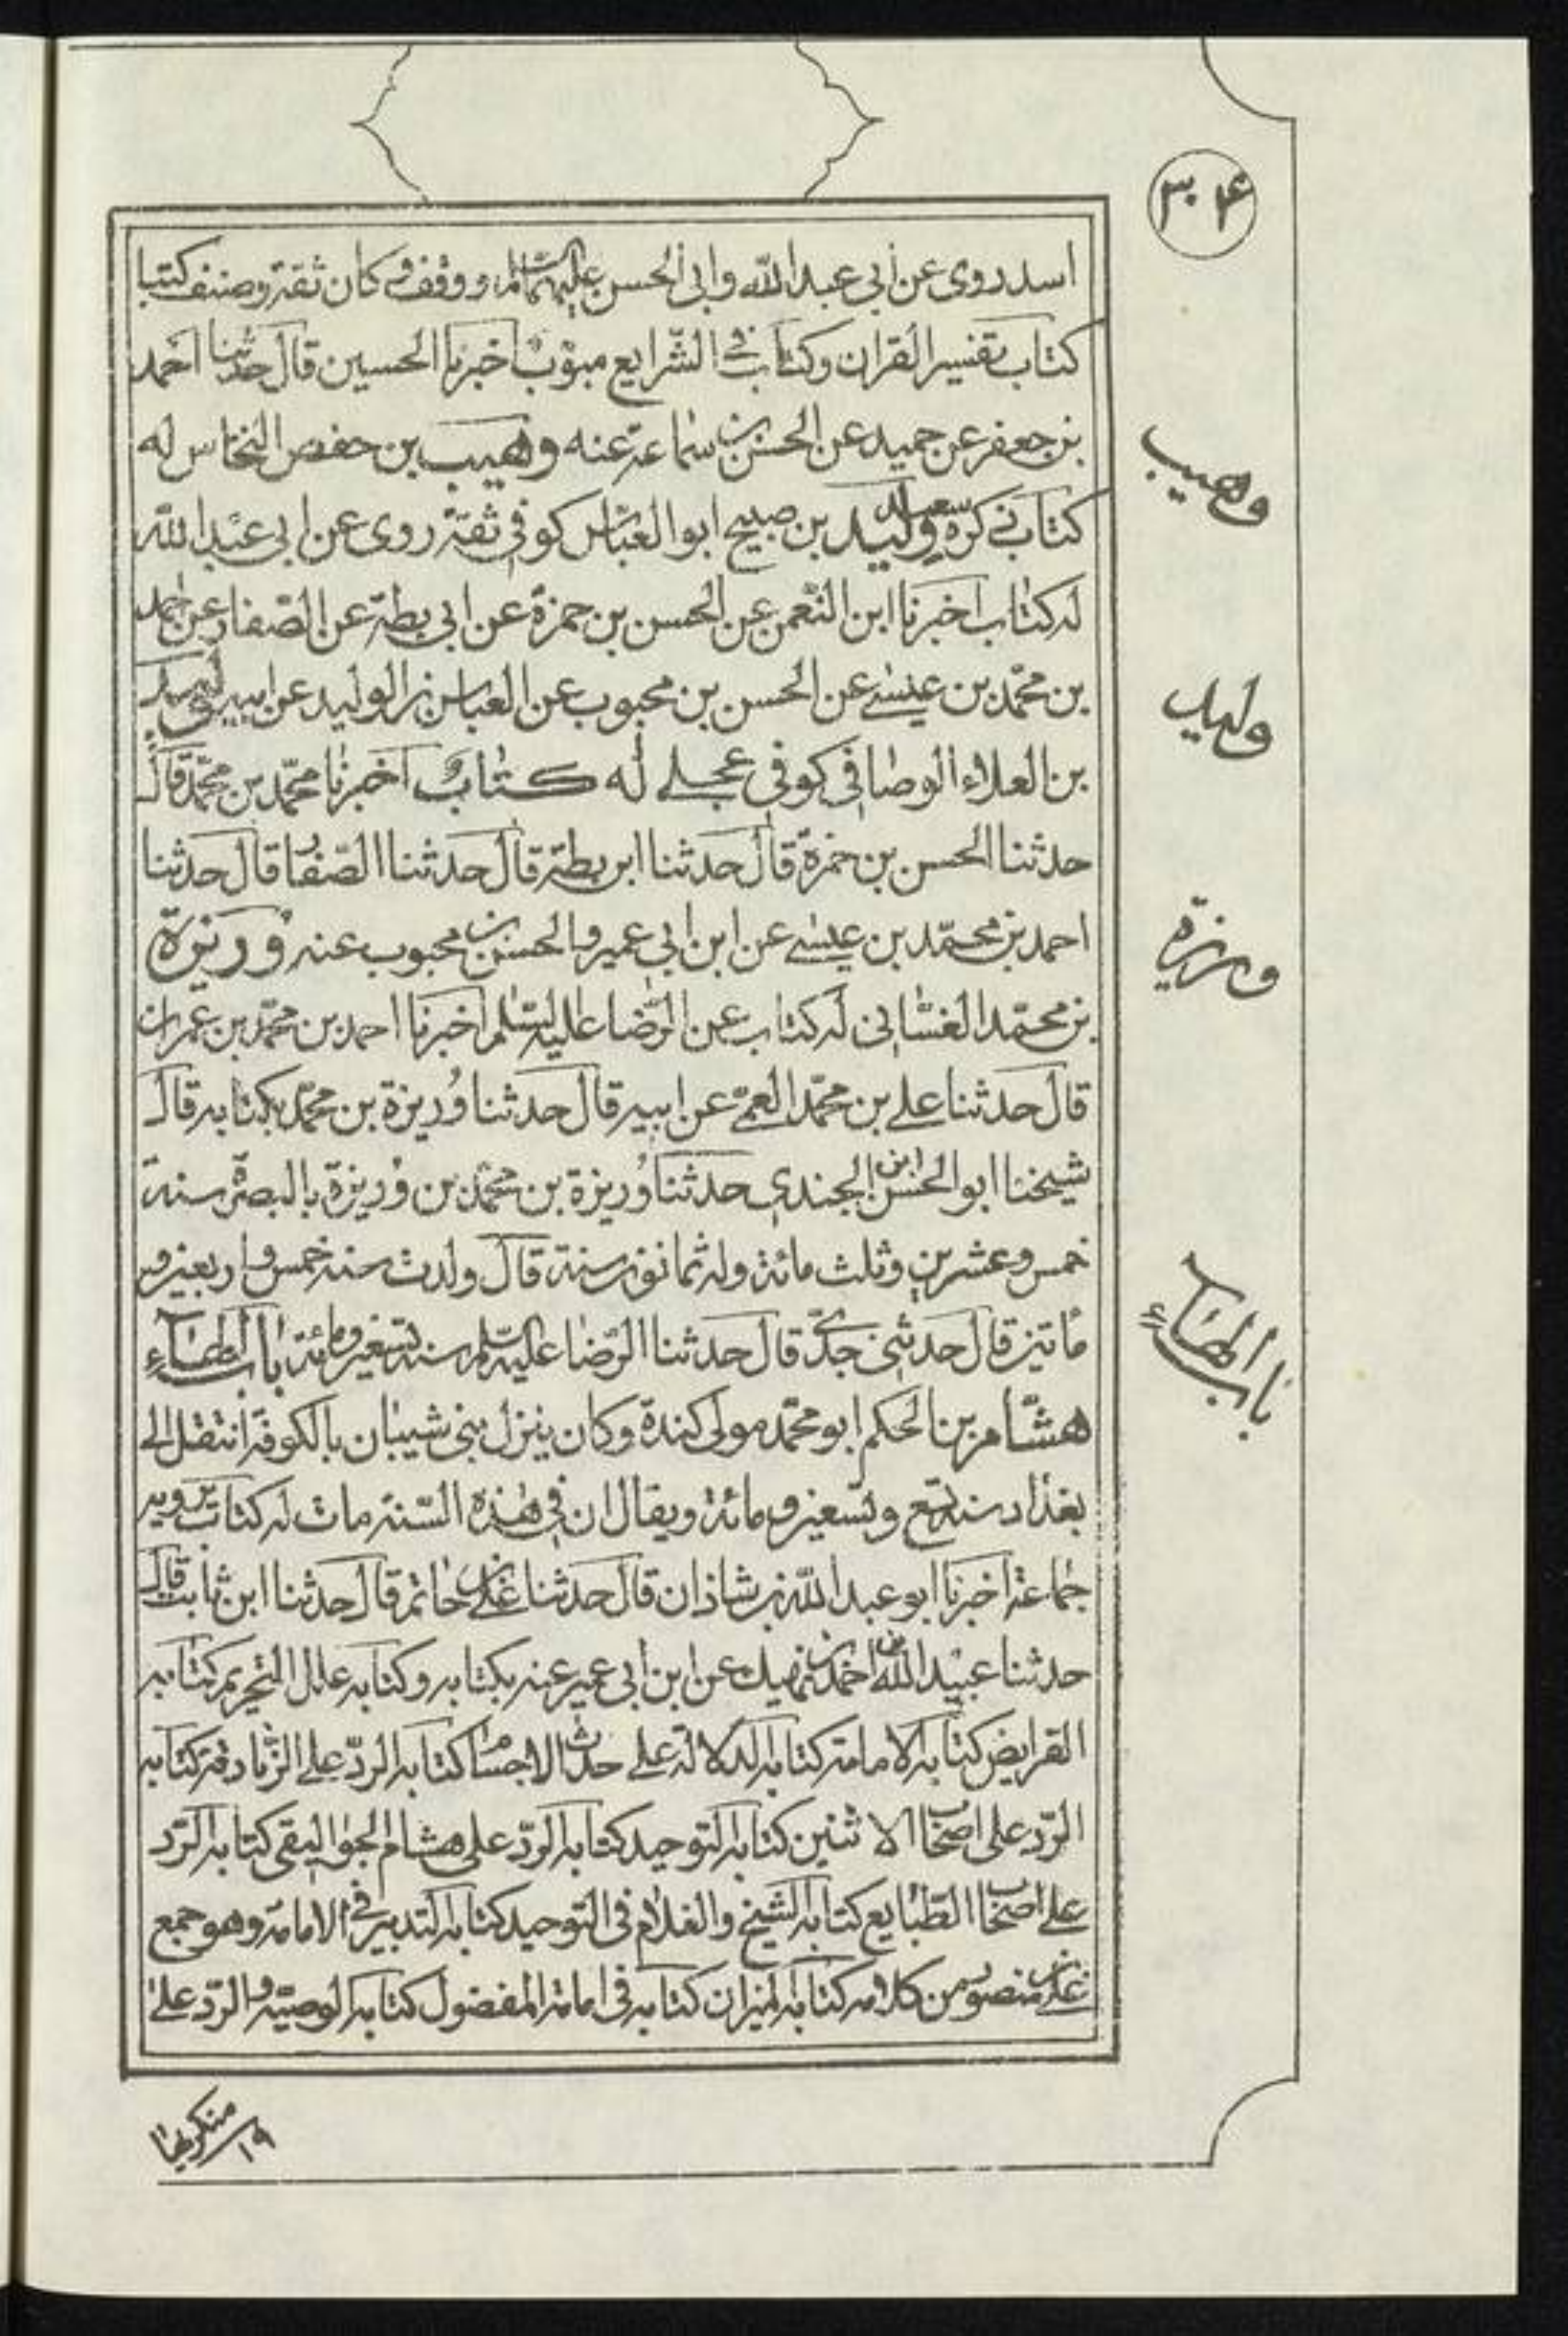 ۳۰۴
اسد روى عن أبي عبد الله وابى الحسن عليهما السلام ووقف وكان ثقة وصنف كتبا
كتاب تفسير القران وكتاب في الشرايع مبوّب اخبرنا الحسين قال حدثنا احمد
بن جعفر عن حميد عن الحسن بن سماعة عنه وهيب بن حفص النخاس له
كتاب ذكره سعد وليد بن صبيح ابو العباس كوفي ثقة روى عن ابى عبد الله
له كتاب اخبرنا ابن النعمن عن الحسن بن حمزة عن ابى بطة عن الصفار عن احمد
بن محمّد بن عيسى عن الحسن بن محبوب عن العباس بن الوليد عن ابيه
بن العلاء الوصافى كوفى عجلے له كتاب اخبرنا محمّد بن محمّد قال
حدثنا الحسن بن حمزة قال حدثنا ابن بطة قال حدثنا الصفار قال حدثنا
احمد بن محمّد بن عيسى عن ابن ابى عمير والحسن بن محبوب عنه وُرَيزة
بن محمّد الغسّانى له كتاب عن الرّضا عليه السّلم اخبرنا احمد بن محمّد بن عمران
قال حدثنا على بن محمّد العمّى عن ابيه قال حدثنا وُريزة بن محمّد بكتابه قال
شيخنا ابو الحسن ابن الجندى حدثنا وُريزة بن محمّد بن وُريزة بالبصرة سنة
خمس وعشرين وثلث مائة وله ثمانون سنة قال ولدت سنه خمس واربعين و
مأتين قال حدثنى جدّى قال حدثنا الرّضا عليه السّلم سنه تسعين ومائة باب الهاء
هشام بن الحكم ابو محمّد مولى كندة وكان ينزل بنى شيبان بالكوفة انتقل الى
بغداد سنة تسع وتسعين ومائة ويقال ان فى هذه السّنة مات له كتاب يرويه
جماعة اخبرنا ابو عبد الله بن شاذان قال حدثنا على بن حاتم قال حدثنا ابن ثابت قال
حدثنا عبيد الله بن احمد بن نهيك عن ابن ابى عمير عنه بكتابه وكتابه علل التحريم كتابه
الفرايض كتابه الامامة كتابه الدلالة على حدث الاجسام كتابه الردّ على الزنادقة كتابه
الرّد على اصحاب الاثنين كتابه التوحيد كتابه الردّ على هشام الجواليقى كتابه الرّد
على اصحاب الطّبايع كتابه الشيخ والغلام فى التوحيد كتابه التدبير فى الامامة وهو جمع
على بن منصور من كلامه كتابه الميزان كتابه فى امامة المفضول كتابه الوصيّة والردّ على
وهيب
وليد
وريزة
باب الهاء
منكريها
۱۹